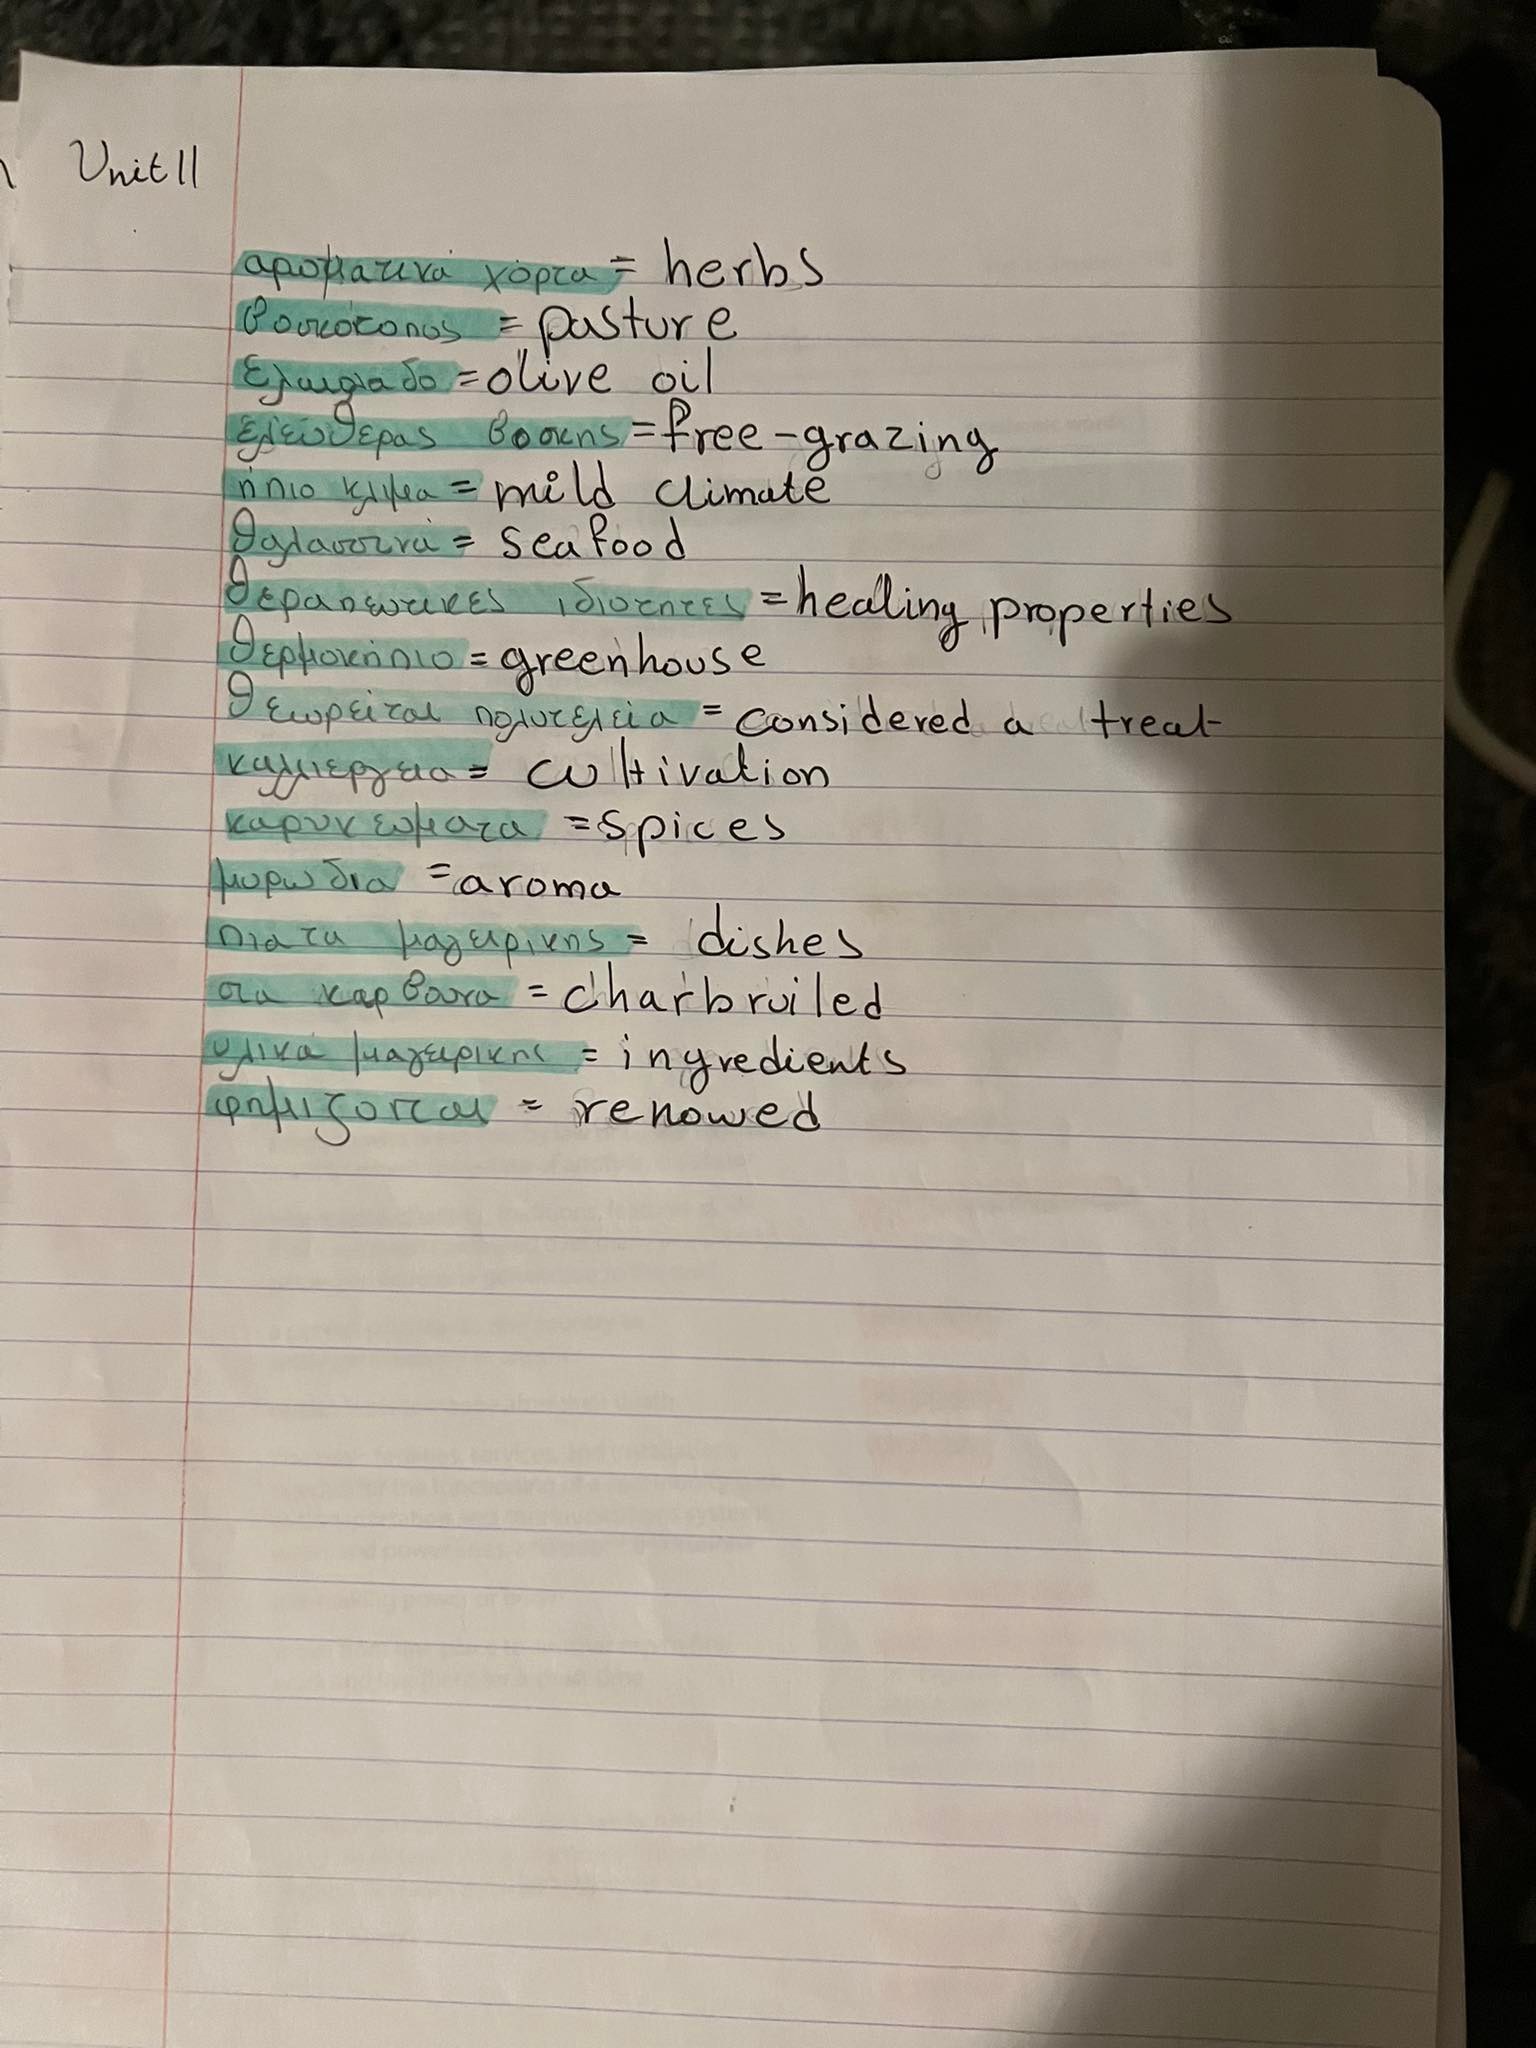 Unit 11
αρωματικά χόρτα = herbs
βοσκότοπος = pasture
ελαιολαδο = olive oil
ελεύθερας βοσκης = free-grazing
ήπιο κλιμα = mild climate
θαλασσινά = seafood
θεραπευτικες ιδιοτητες = healing properties
θερμοκήπιο = greenhouse
θεωρείται πολυτελεία = considered a treat
καλλιεργεια = cultivation
καρυκευματα = spices
μυρωδια = aroma
πιατα μαγειρικης = dishes
στα καρβουνα = charbroiled
υλικά μαγειρικης = ingredients
φημιζοται = renowed